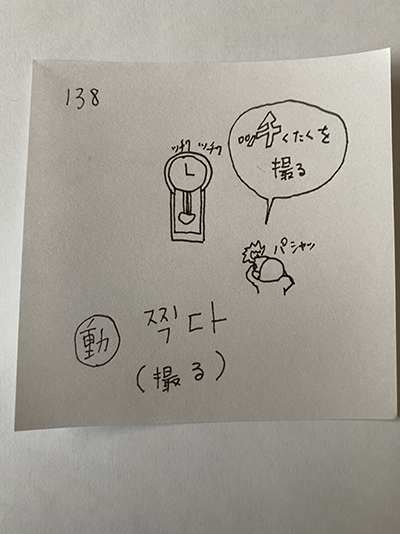 138
ツチク ツチク
ッッチくたくを
撮る
パシャッ
動 찍다
(撮る)